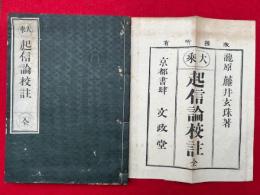 大乗
起信論校註
全
版権所有
龍原 藤井玄珠著
大乗
起信論校註 全
京都書肆 文政堂